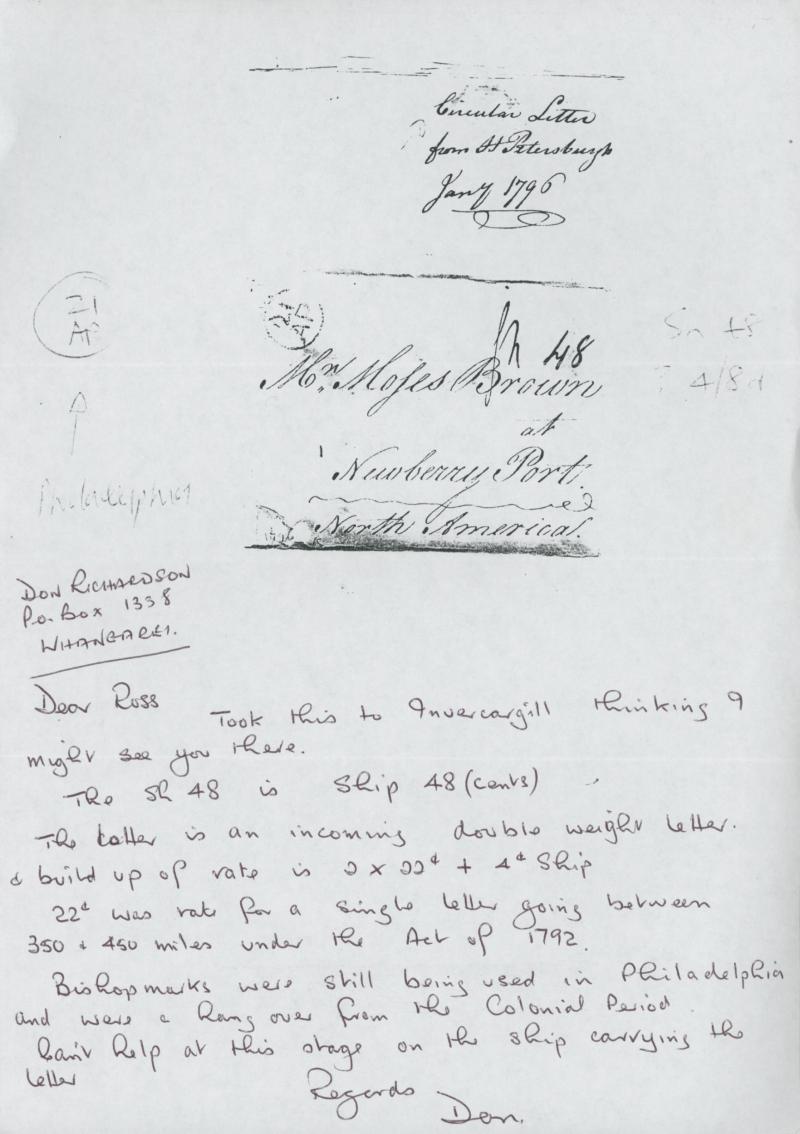 Circular Letter
from St Petersburgh
Jany 1796
21
AP
21
AP
Sh 48
Sh 48
? 4/8d
Mr. Moses Brown
at
Newberry Port
North America.
Philadelphia
DON RICHARDSON
P.O. Box 1338
WHANGAREI.
Dear Ross
Took this to Invercargill thinking I
might see you there.
The Sh 48 is Ship 48 (cents)
The latter is an incoming double weight letter.
& build up of rate is 2 x 22¢ + 4¢ Ship
22¢ was rate for a single letter going between
350 & 450 miles under the Act of 1792.
Bishopmarks were still being used in Philadelphia
and were a hang over from the Colonial Period.
Can't help at this stage on the ship carrying the
letter
Regards
Don.